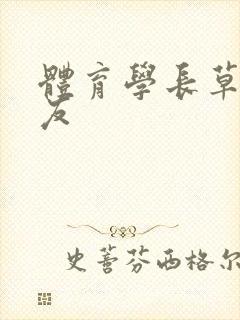 體育學長草
友
史蒼芬西格尔